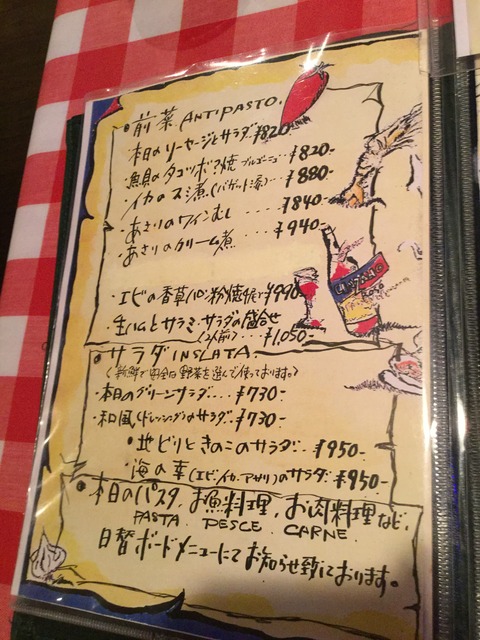 ・前菜 ANTIPASTO.
・本日のソーセージとサラダ ¥820-
・魚貝のタコツボ焼 ブルゴーニュ… ¥820-
・イカのスミ煮(バゲット添) … ¥880-
・あさりのワインむし … ¥840-
・あさりのクリーム煮 … ¥940-
・エビの香草パン粉焼 ¥990-
・生ハムとサラミ・サラダの盛合せ
(2人前) … ¥1,050-
・サラダ INSLATA
〈新鮮で安全な野菜を選んで使っております。〉
・本日のグリーンサラダ … ¥730-
・和風(ドレッシング)のサラダ … ¥730-
・地どりときのこのサラダ … ¥950-
・海の幸(エビ、イカ、アサリ)のサラダ ¥950-
・本日のパスタ、お魚料理、お肉料理など、
PASTA PESCE CARNE
日替ボードメニューにてお知らせ致しております。